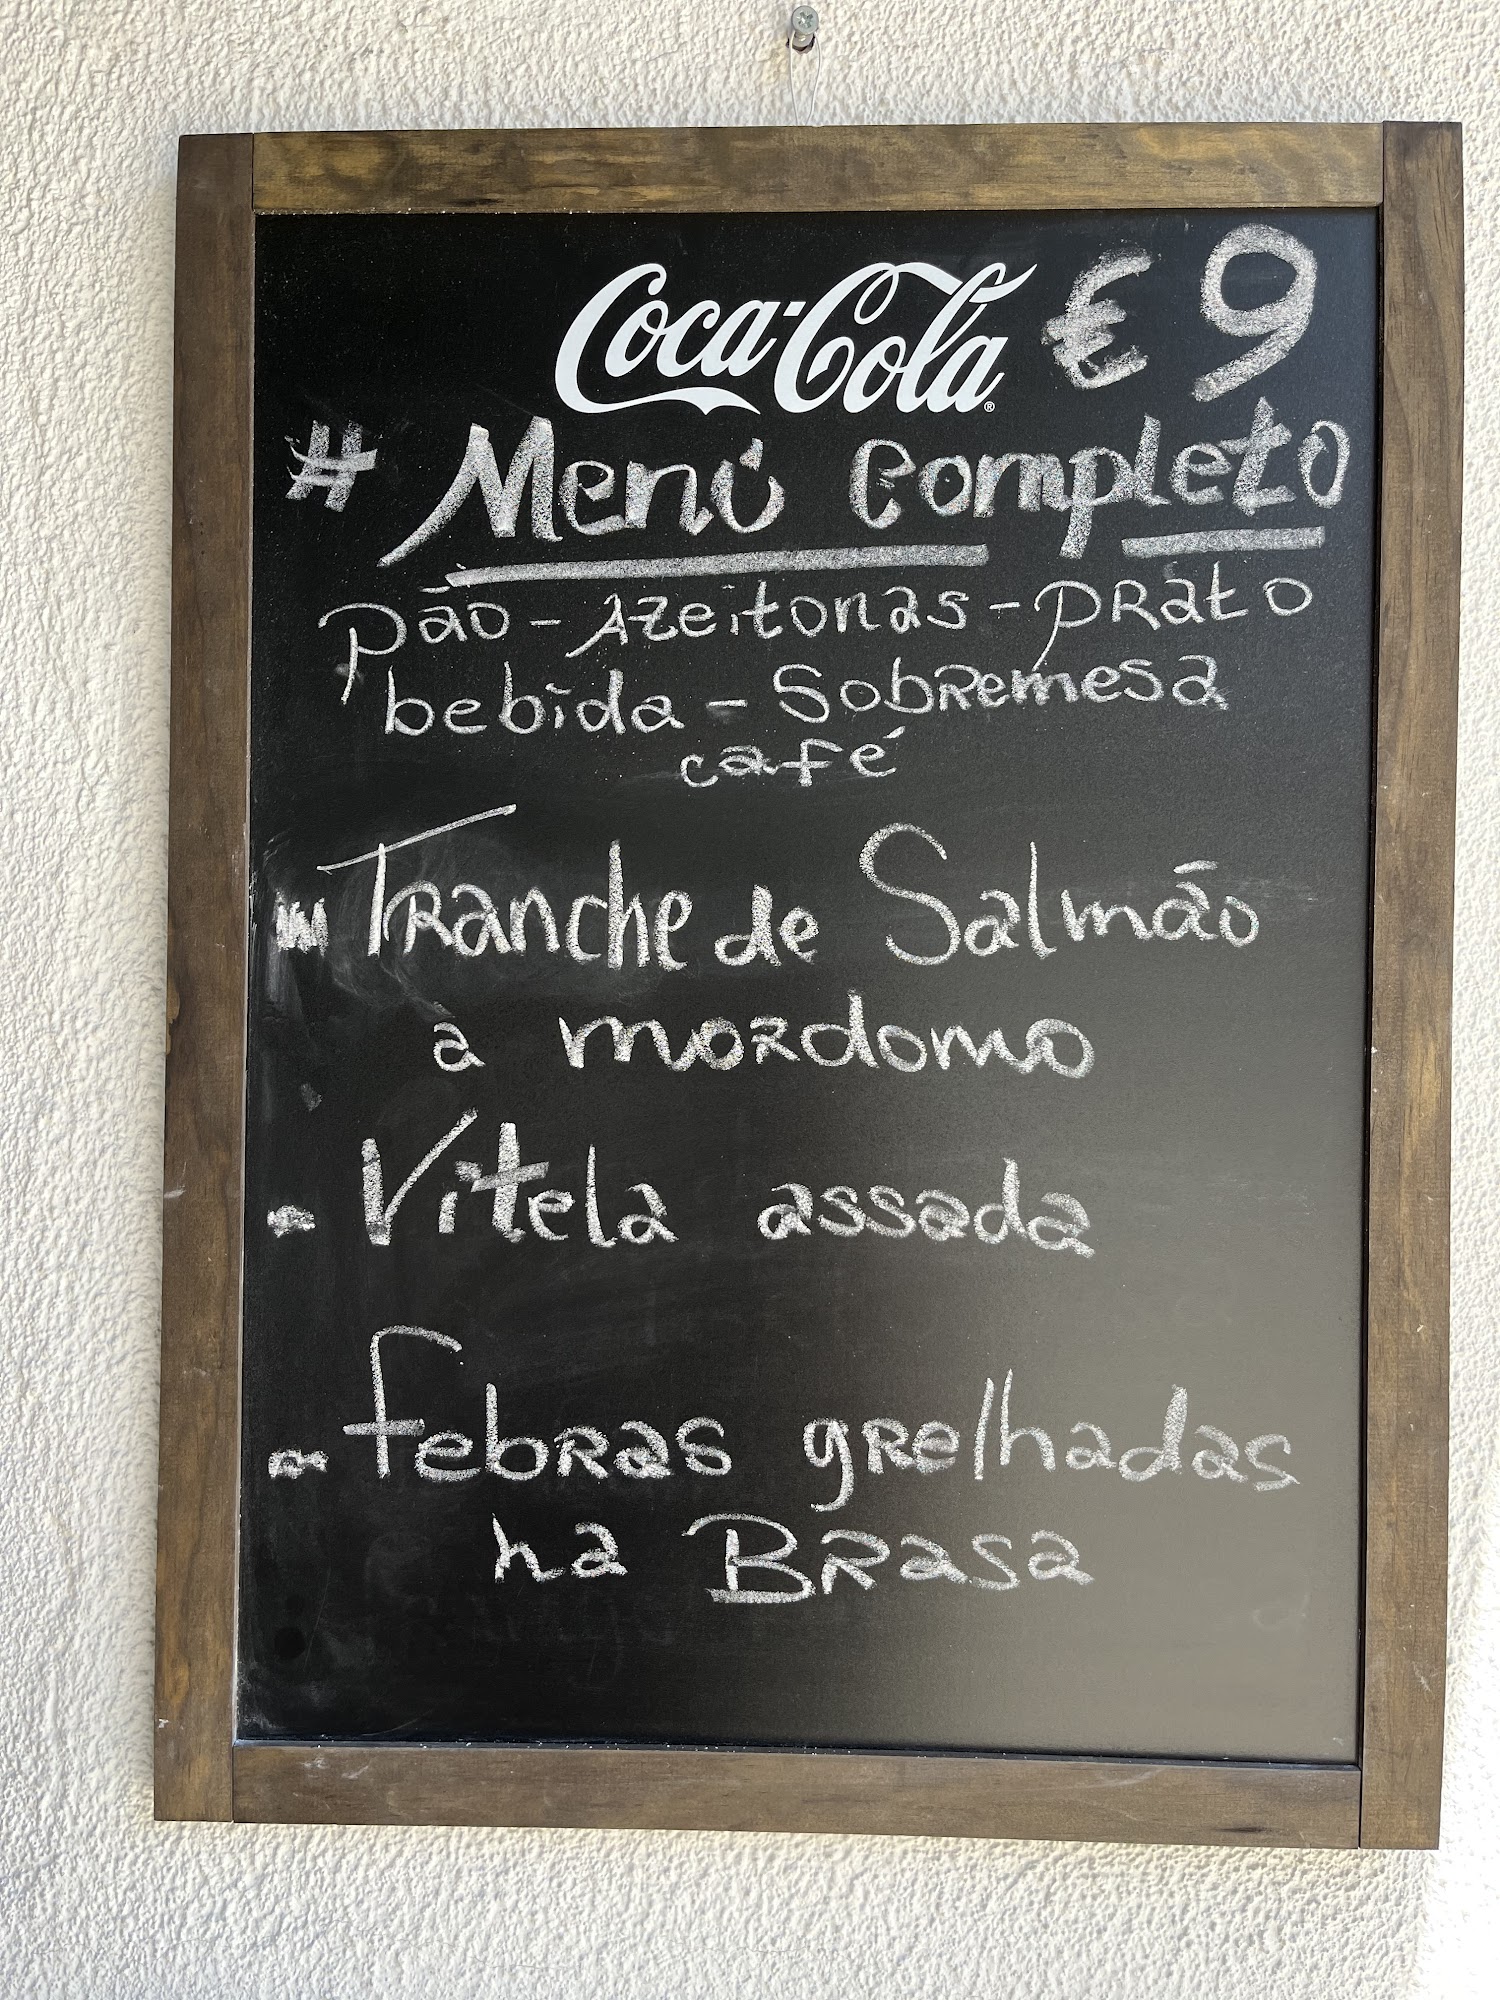 Coca-Cola® € 9
# Menú Completo
pão - Azeitonas - prato
bebida - Sobremesa
café
- Tranche de Salmão
a mordomo
- Vitela assada
- febras grelhadas
na Brasa